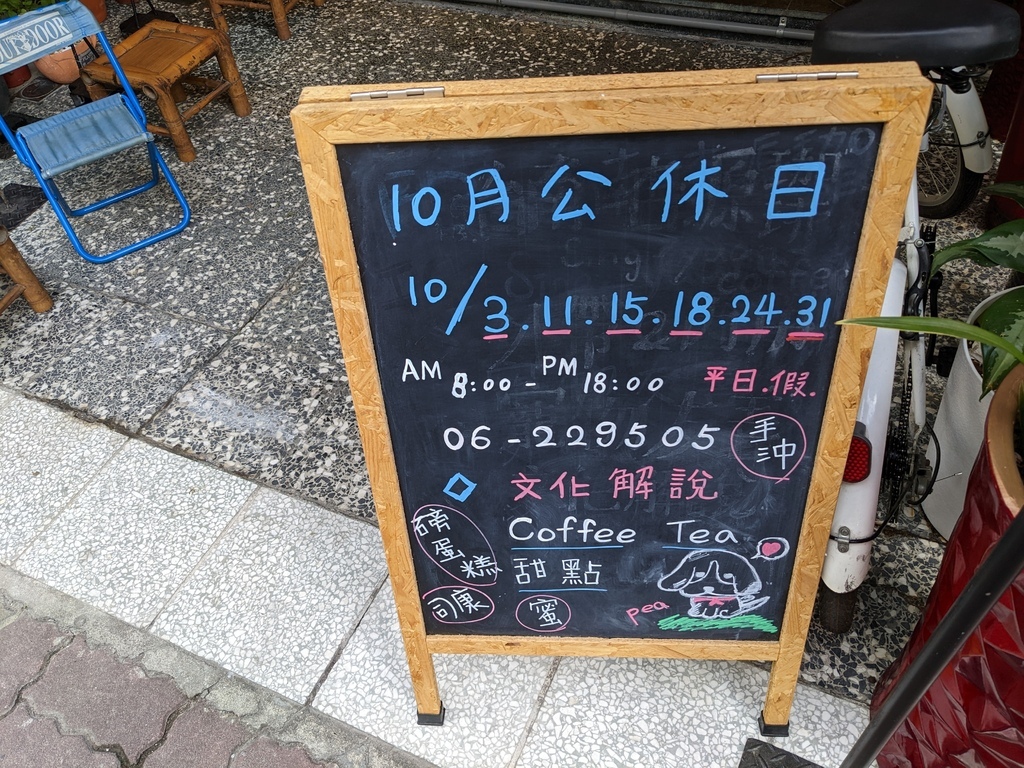 OUTDOOR
10月公休日
10/3.11.15.18.24.31
AM 8:00 - PM 18:00 平日.假.
06-2295055
手沖
文化解說
磅蛋糕
Coffee Tea
甜點
司康
蜜
pea